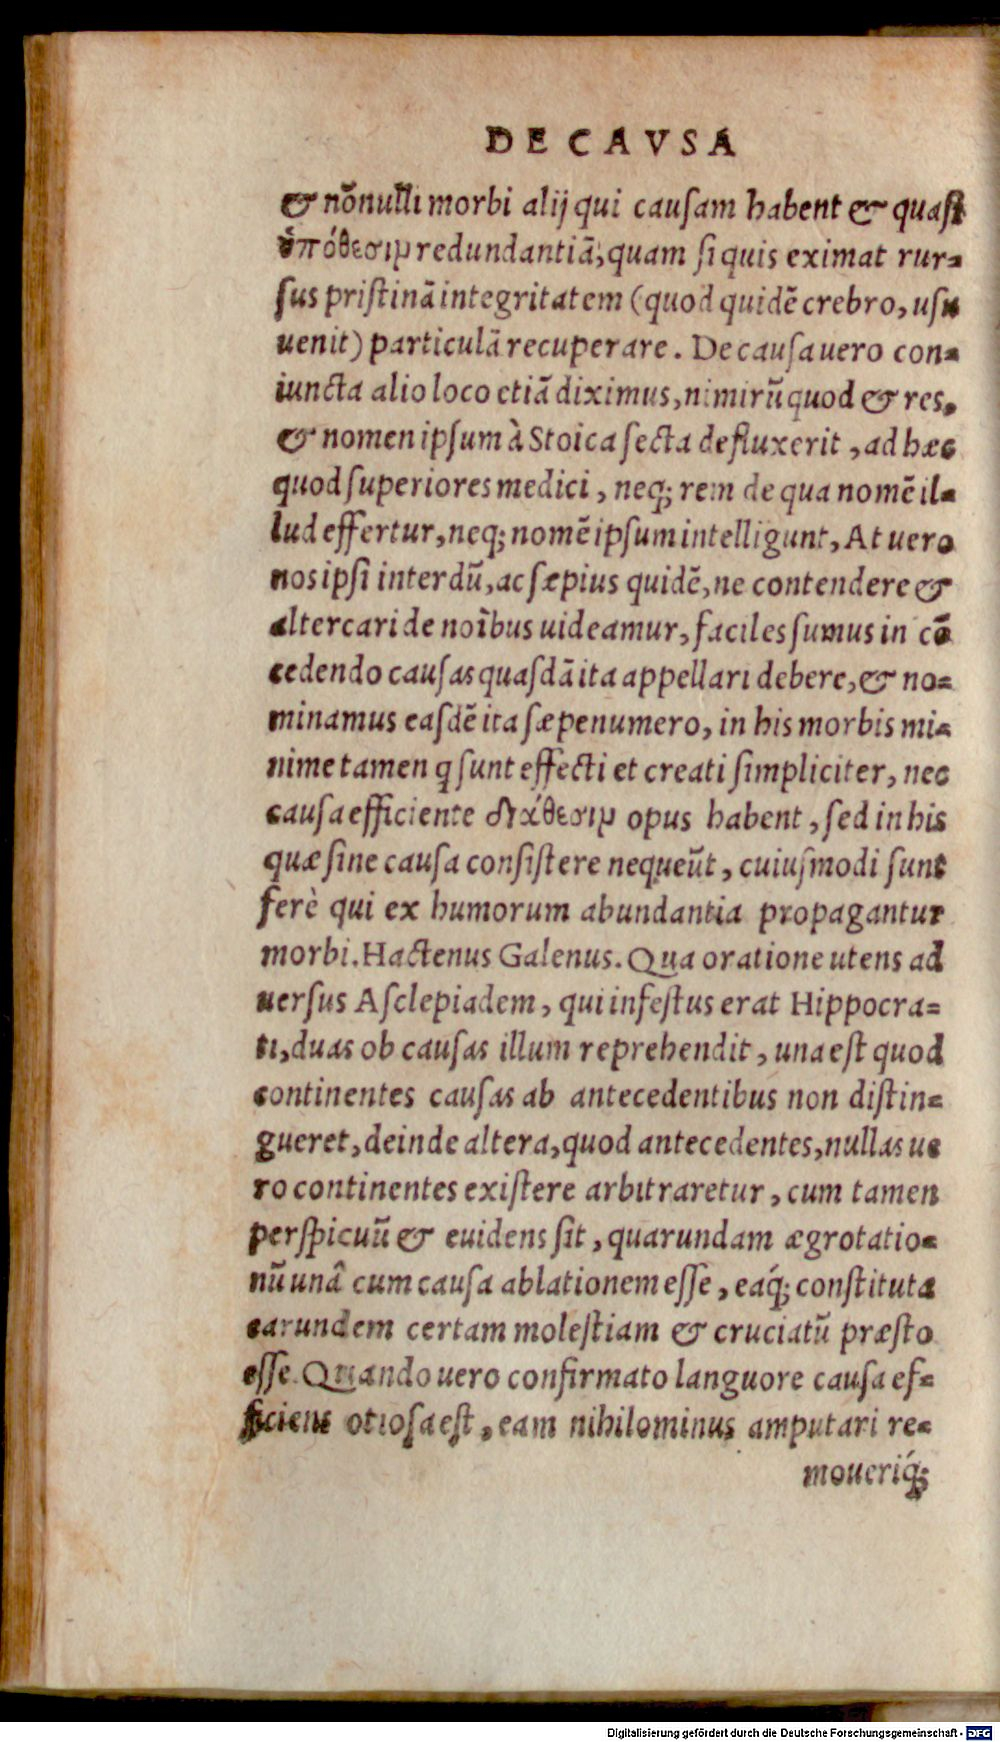 DE CAVSA
& nõnulli morbi alij qui cauſam habent & quaſi
ὑπόθεσιμ redundantiã; quam ſi quis eximat rur-
ſus priſtinã integritatem (quod quidẽ crebro, uſu
uenit) particulã recuperare. De cauſa uero con-
iuncta alio loco etiã diximus, nimirũ quod & res,
& nomen ipſum à Stoica ſecta defluxerit, ad hæc
quod ſuperiores medici, neq; rem de qua nomẽ il-
lud effertur, neq; nomẽ ipſum intelligunt, At uero
nos ipſi interdũ, ac ſæpius quidẽ, ne contendere &
altercari de noĩbus uideamur, faciles ſumus in cõ
cedendo cauſas quaſdã ita appellari debere, & no-
minamus eaſdẽ ita ſæpenumero, in his morbis mi-
nime tamen q ſunt effecti et creati ſimpliciter, nec
cauſa efficiente διάθεσιμ opus habent, ſed in his
quæ ſine cauſa conſiſtere nequeũt, cuiuſmodi ſunt
ferè qui ex humorum abundantia propagantur
morbi. Hactenus Galenus. Qua oratione utens ad
uerſus Aſclepiadem, qui infeſtus erat Hippocra-
ti, duas ob cauſas illum reprehendit, una eſt quod
continentes cauſas ab antecedentibus non diſtin-
gueret, deinde altera, quod antecedentes, nullas ue
ro continentes exiſtere arbitraretur, cum tamen
perſpicuũ & euidens ſit, quarundam ægrotatio-
nũ unâ cum cauſa ablationem eſſe, eaq́; conſtituta
earundem certam moleſtiam & cruciatũ præſto
eſſe. Quando uero confirmato languore cauſa ef-
ficiens otioſa eſt, eam nihilominus amputari re-
moueriq́;
Digitalisierung gefördert durch die Deutsche Forschungsgemeinschaft - DFG